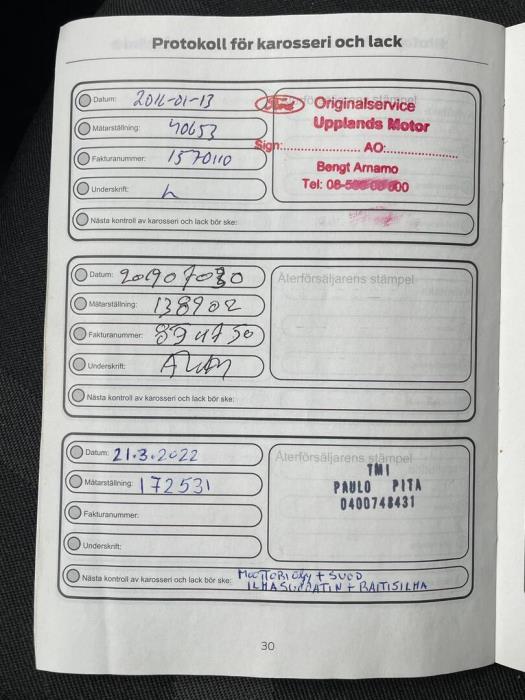 Protokoll för karosseri och lack
Datum: 2016-01-13
Mätarställning: 40653
Fakturanummer: 1570110
Underskrift:
Nästa kontroll av karosseri och lack bör ske:
Ford Originalservice
Upplands Motor
Sign:.................. AO:..................
Bengt Arnamo
Tel: 08-
Datum: 201907030
Mätarställning: 138902
Fakturanummer:
Underskrift:
Nästa kontroll av karosseri och lack bör ske:
Återförsäljarens stämpel
Datum: 21.3.2022
Mätarställning: 172531
Fakturanummer:
Underskrift:
Återförsäljarens stämpel
TMI
PAULO PITA
0400748431
Nästa kontroll av karosseri och lack bör ske: MOOTTORIÖLJY + SUOD
ILMASUODATIN + RAITISILMA
30